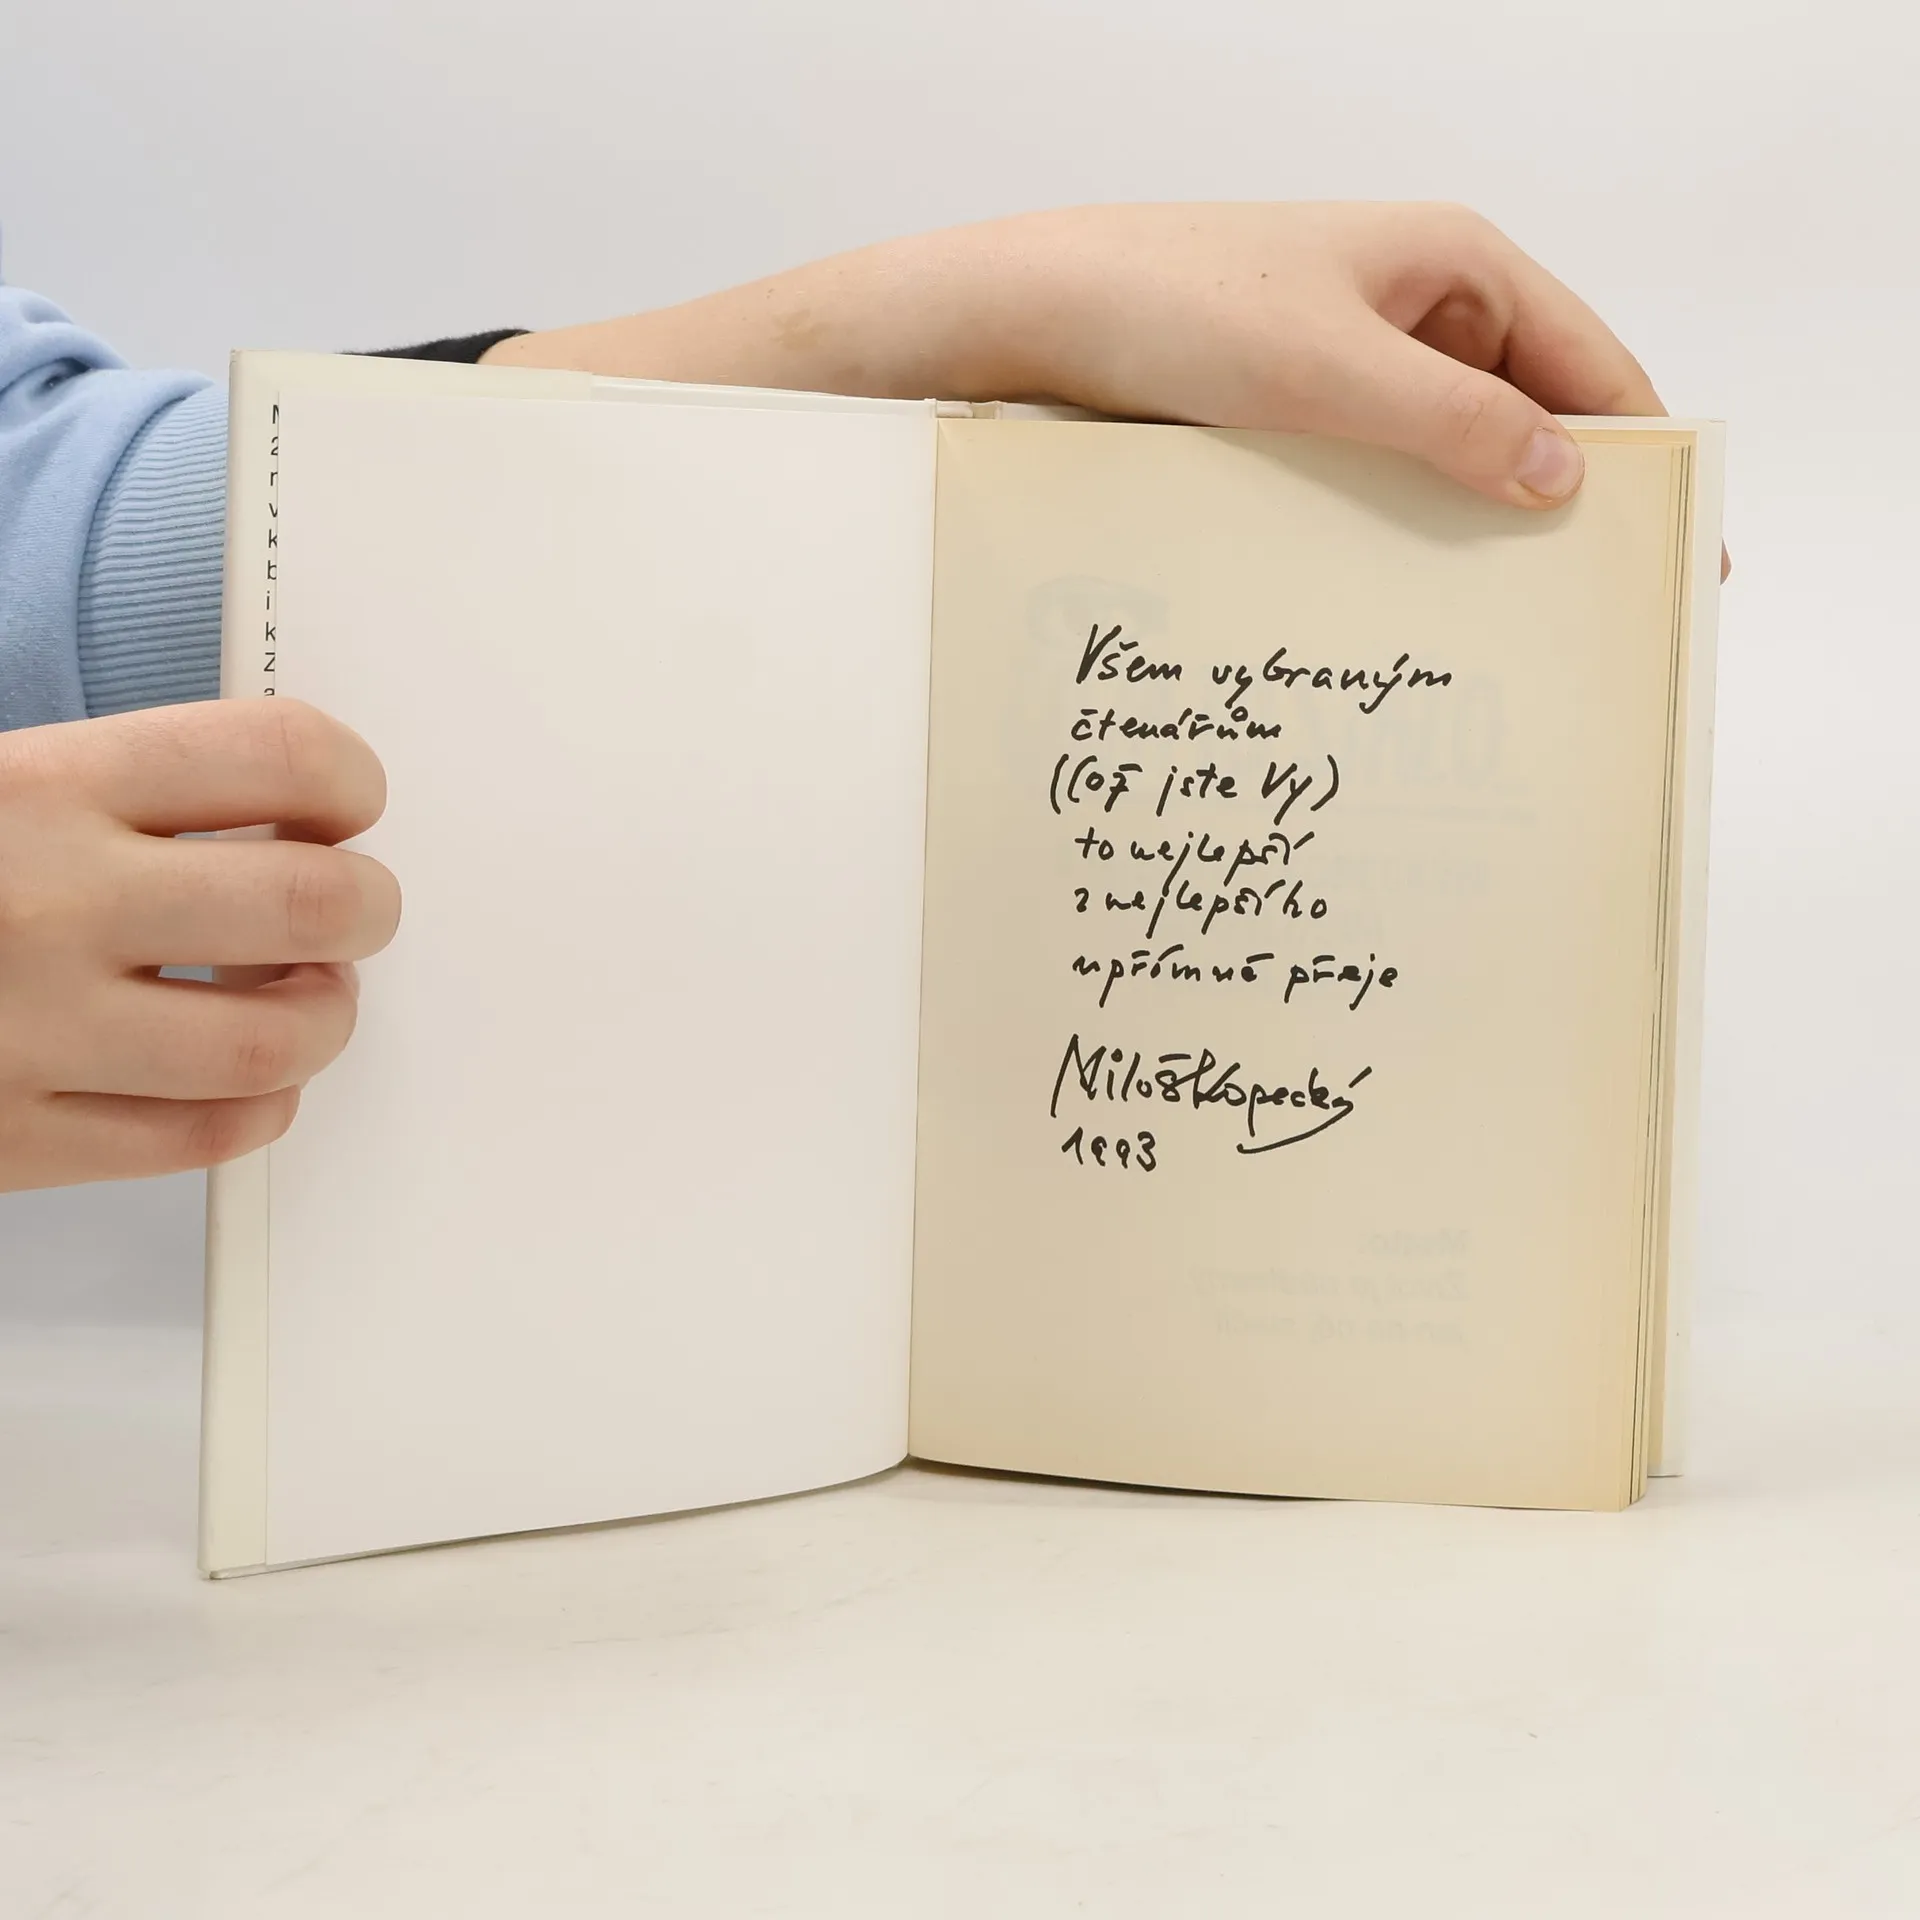 M
a
n
v
k
b
i
k
Z
a
Všem vybraným
čtenářům
(Což jste Vy)
to nejlepší
z nejlepšího
upřímně přeje
Miloš Kopecký
1993